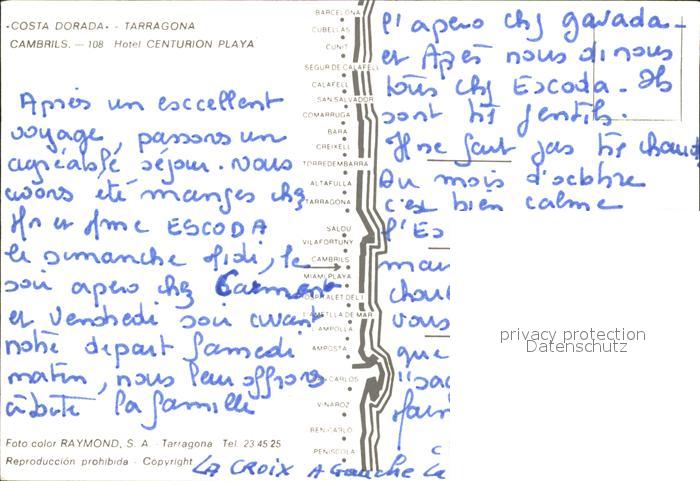 •COSTA DORADA• - TARRAGONA
CAMBRILS. — 108 Hotel CENTURION PLAYA
Après un esccellent
voyage, passons un
agréable séjour. nous
avons été manges chez
Mr et Mme ESCODA
le dimanche Midi, le
soir apero chez
et Vendredi soir avant
notre depart Samedi
matin, nous leur offrons
à boire la famille
Foto color RAYMOND, S. A. - Tarragona Tel. 23 45 25
Reproducción prohibida - Copyright
LA CROIX A Gauche
BARCELONA
CUBELLAS
CUNIT
SEGUR DE CALAFELL
CALAFELL
SAN SALVADOR
COMARRUGA
BARA
CREIXELL
TORREDEMBARRA
ALTAFULLA
TARRAGONA
SALOU
VILAFORTUNY
CAMBRILS
MIAMI PLAYA
HOSPITALET DEL I
L'AMETLLA DE MAR
L'AMPOLLA
AMPOSTA
CARLOS
VINAROZ
BENICARLO
PEÑISCOLA
l'apero chz gavada -
et Après nous dinons
tous chz Escoda. Ils
sont très gentils.
Il ne fait pas très chaud
Au mois d'octobre
c'est bien calme
l'Es
mau
chou
vous
que
fair
privacy protection
Datenschutz